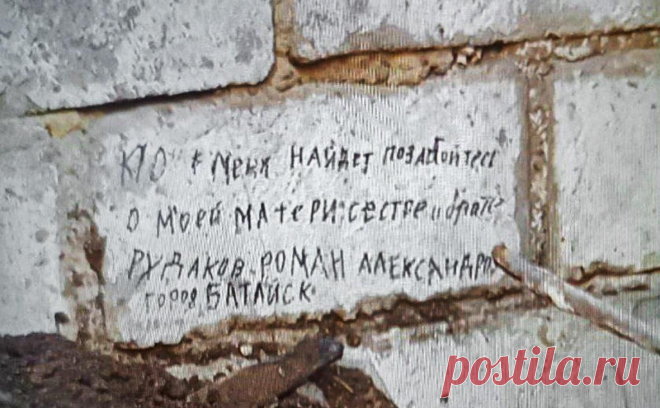 КТО меня НАЙДЕТ ПОЗАБОТЕСЬ
О МОЕЙ МАТЕРИ, СЕСТРЕ и брате
РУДАКОВ РОМАН АЛЕКСАНДРО
город БАТАЙСК
postila.ru